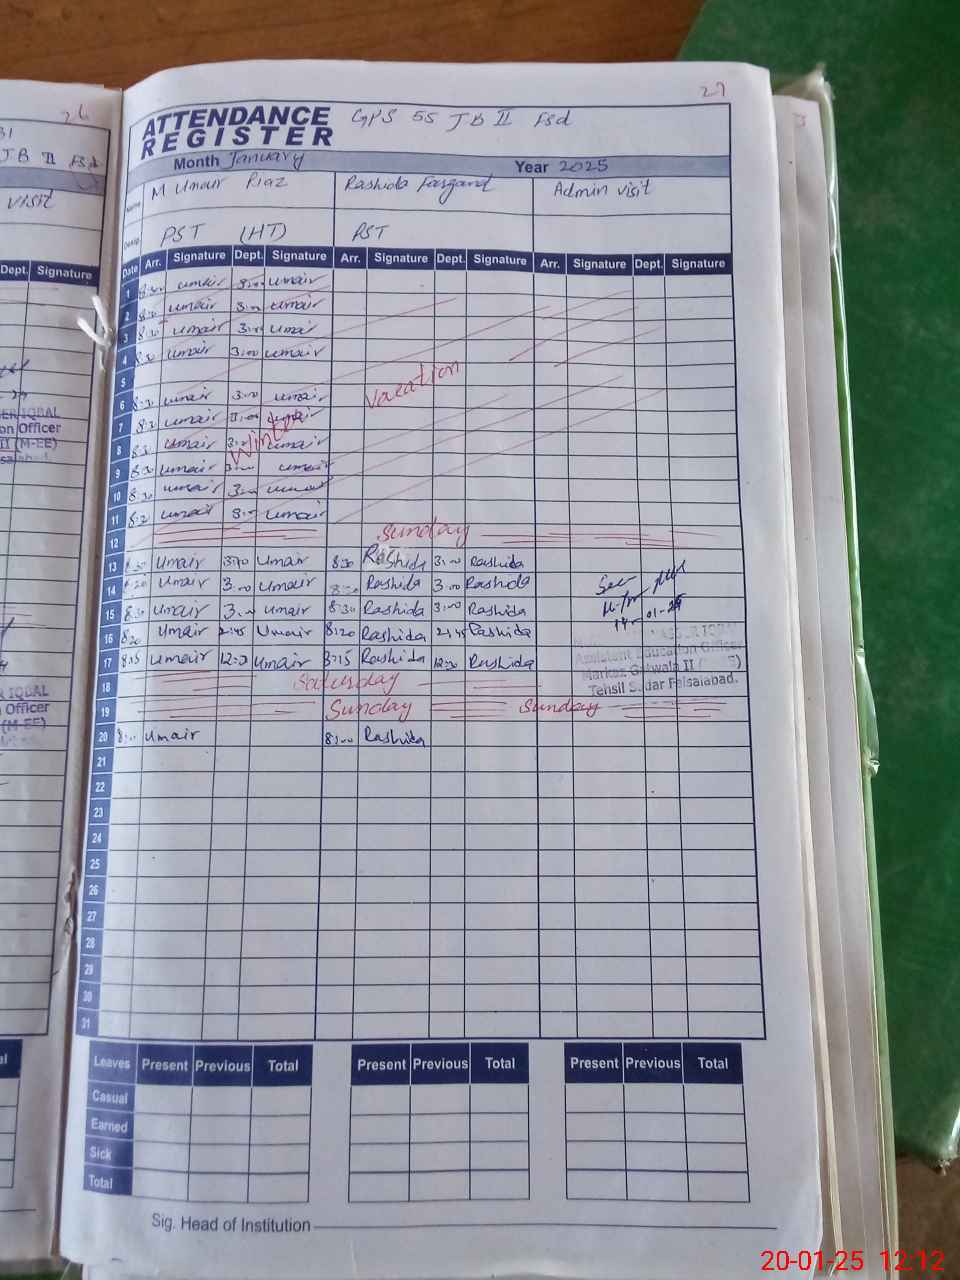 26
JB II Fsd
visit
Dept. Signature
27
ATTENDANCE REGISTER GPS 55 JB II Fsd
Month January Year 2025
Name M Umair Riaz Rashida Admin visit
Desig. PST (HT) PST
Date Arr. Signature Dept. Signature Arr. Signature Dept. Signature Arr. Signature Dept. Signature
1 8:30 umair umair
2 8:30 umair 3:00 umair
3 8:30 umair 3:00 umair
4 8:30 umair 3:00 umair
5
Vacation
6 8:30 umair 3:00 umair
7 8:30 umair umair
Winter
8 8:30 umair 3:00 umair
9 8:30 umair 3:00 umair
10 8:30 umair 3:00 umair
11 8:30 umair umair
12 Sunday
13 8:30 Umair Umair 8:30 Rashida 3:00 Rashida
14 8:20 Umair 3:00 Umair Rashida 3:00 Rashida
15 8:30 Umair 3:00 Umair 8:30 Rashida 3:00 Rashida
16 8:20 Umair 2:45 Umair 8:20 Rashida 2:45 Rashida
17 8:15 Umair Umair 8:15 Rashida 12:30 Rashida
Assistant Education Officer
Markaz Gatwala II
Tehsil Sadar Faisalabad.
18 Saturday
19 Sunday Sunday
20 8:00 Umair 8:00 Rashida
21
22
23
24
25
26
27
28
29
30
31
Leaves Present Previous Total Present Previous Total Present Previous Total
Casual
Earned
Sick
Total
Sig. Head of Institution
20-01-25 12:12